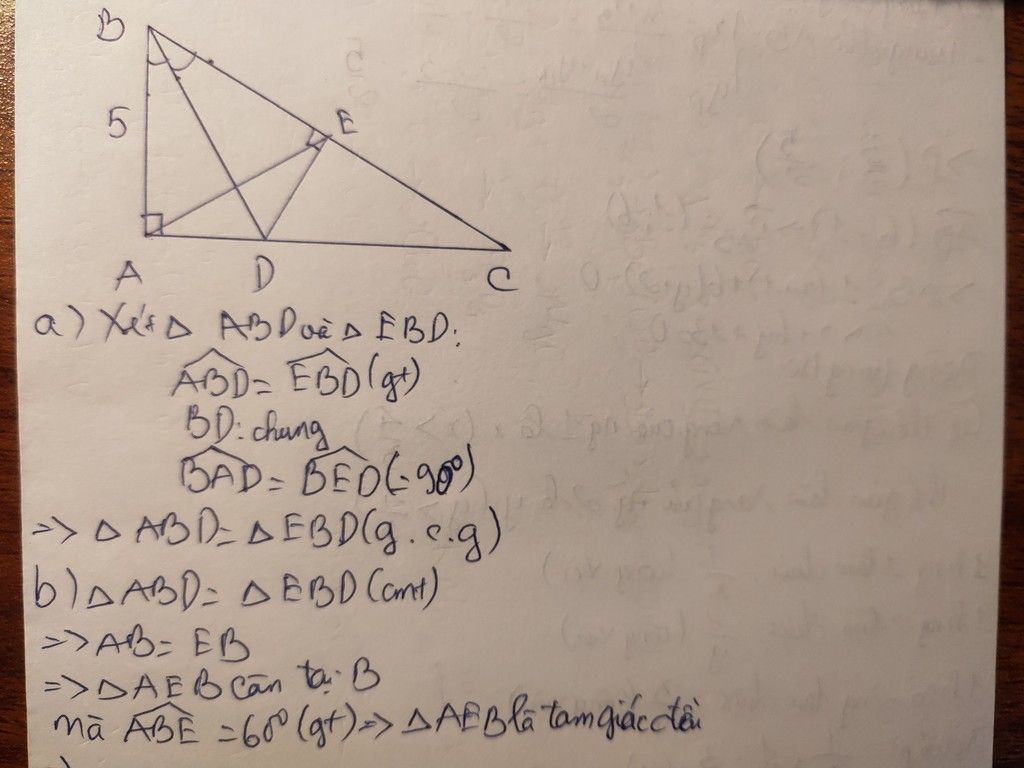 B
5
E
A D C
a) Xét △ ABD và △ EBD:
ABD = EBD (gt)
BD: chung
BAD = BED (= 90°)
=> △ ABD = △ EBD (g.c.g)
b) △ ABD = △ EBD (cmt)
=> AB = EB
=> △ AEB cân tại B
mà ABE = 60° (gt) => △ AEB là tam giác đều